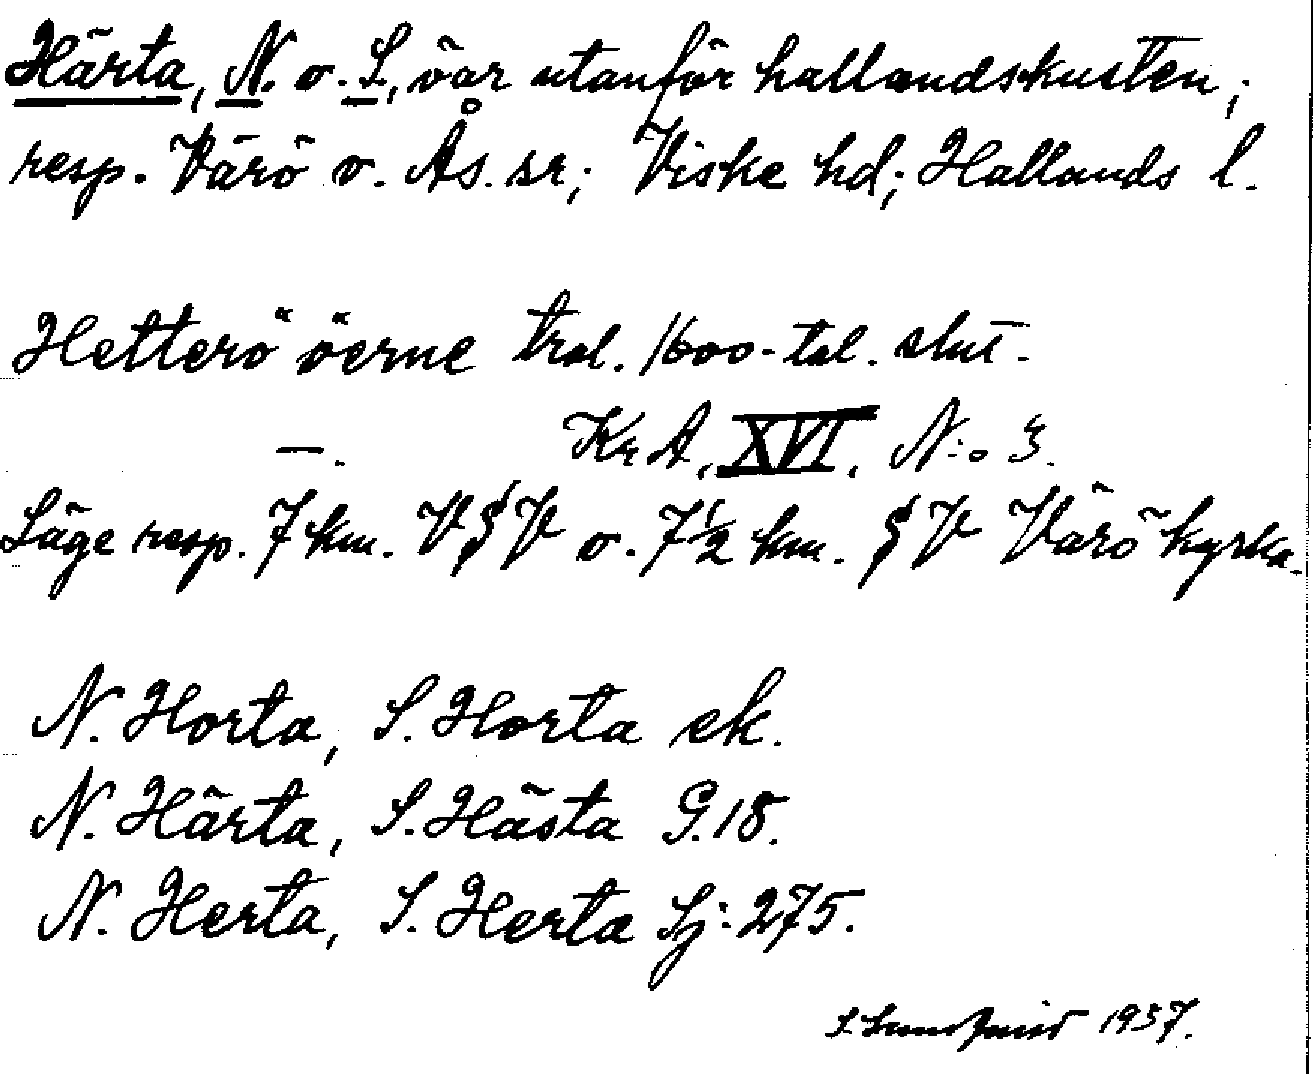 Härta, N. o. S., öar utanför hallandskusten;
resp. Värö o. Ås. sr; Viske hd; Hallands l.
Hetterö" öerne trol. 1600-tal. slut.
—. KrA, XVI, N:o 3.
Läge resp. 7 km. VSV o. 7 1/2 km. SV Värö kyrka.
N. Horta, S. Horta ek.
N. Härta, S. Hästa G. 18.
N. Herta, S. Herta Sj: 275.
S. Lundquist 1937.